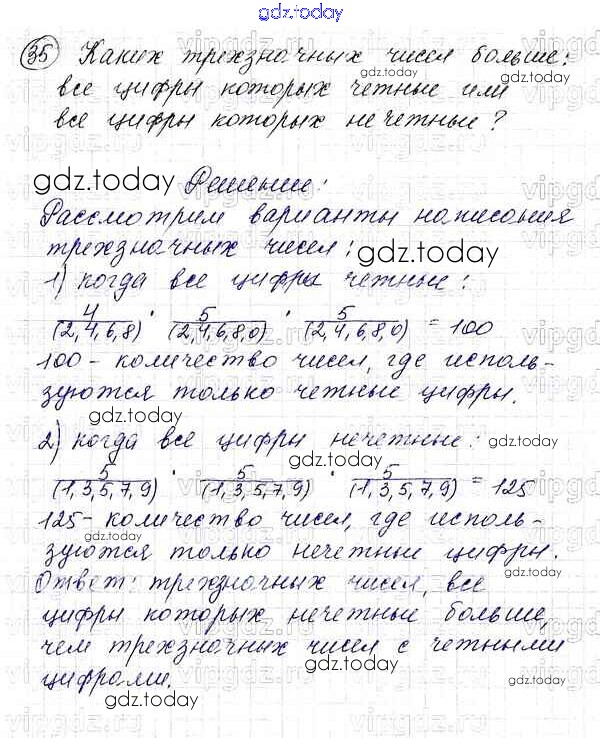 gdz.today
35 Каких трехзначных чисел больше:
все цифры которых четные или
все цифры которых нечетные?
Решение:
Рассмотрим варианты написания
трехзначных чисел:
1) когда все цифры четные:
4 · 5 · 5
(2,4,6,8) (2,4,6,8,0) (2,4,6,8,0) = 100
100 - количество чисел, где исполь-
зуются только четные цифры.
2) когда все цифры нечетные:
5 · 5 · 5
(1,3,5,7,9) (1,3,5,7,9) (1,3,5,7,9) = 125
125 - количество чисел, где исполь-
зуются только нечетные цифры.
Ответ: трехзначных чисел, все
цифры которых нечетные больше,
чем трехзначных чисел с четными
цифрами.
gdz.today